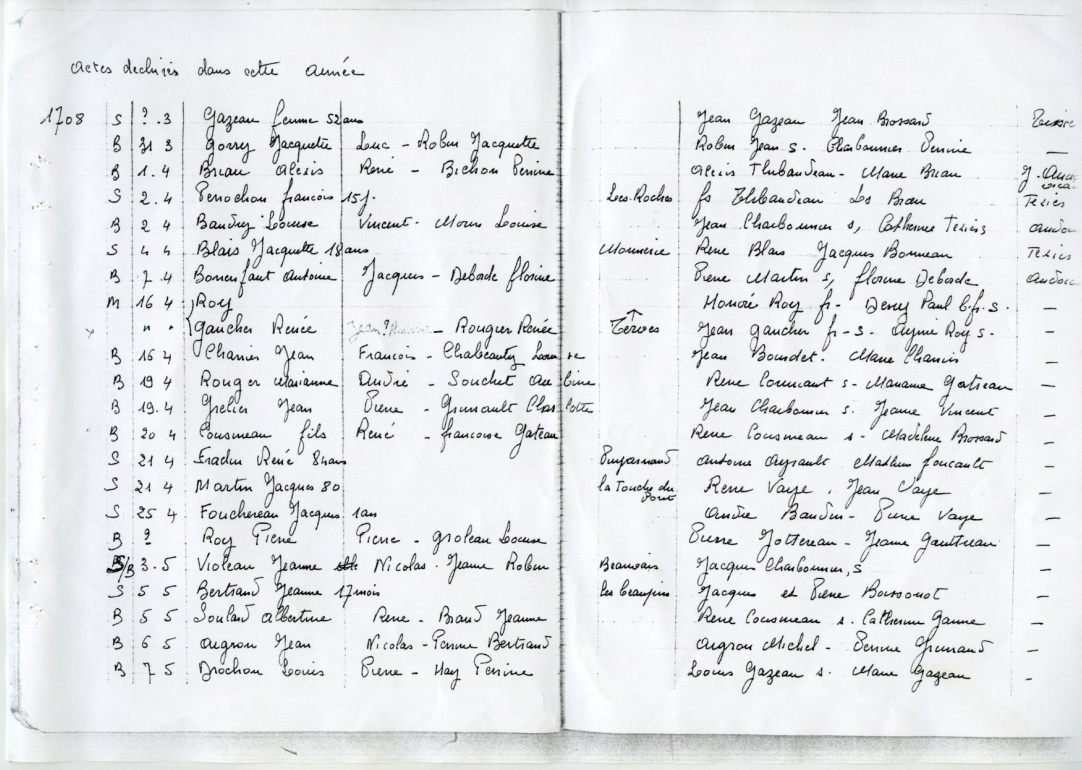 actes dechirés dans cette année
1708 S ? . 3 Gazeau femme 52 ans Jean Gazeau Jean Brossard
B 31 3 Gorry Jacquette Luc - Robin Jacquette Robin Jean s. Charbonnier Perrine —
B 1 . 4 Briau Alexis René - Bichon Perrine Alexis Thibaudeau - Marie Briau
S 2 . 4 Perrochon francois 15 j. Les Roches fs Thibaudeau Ls Briau Texier
B 2 4 Baudry Louise Vincent - Morin Louise Jean Charbonnier s, Catherine Texier
S 4 4 Blais Jacquette 18 ans René Blais Jacques Bonneau Texier
B 7 . 4 Bonenfant Antoine Jacques - Deborde florine Pierre Martin s, florine Deborde
M 16 4 Roy Honoré Roy fr - Paul b.fr. s. —
" " . Gaucher Renée Jean ? - Rougier Renée Terves Jean gaucher fr - s - Roy s. —
B 16 4 Charrier Jean Francois - Louise Jean Bourdet - Marie —
B 19 4 Rougier Marianne André - Souchet René s - Marianne —
B 19 . 4 Grelier Jean Pierre - Charlotte Jean Charbonnier s. Jeanne Vincent —
B 20 4 Cousineau fils René - francoise Gateau René Cousineau s - Madeleine Brossard —
S 21 4 Fradin René 84 ans Antoine Ayrault Mathieu foucault —
S 21 4 Martin Jacques 80 la Touche du Pont René Vaye . Jean Vaye —
S 25 4 Fouchereau Jacques 1 an André Baudin - Pierre Vaye —
B ? Roy Pierre Pierre - groleau Louise Pierre - Jeanne —
S/B 3 . 5 Violeau Jeanne Nicolas . Jeanne Robin Beauvais Jacques Charbonnier, s —
S 5 5 Bertrand Jeanne 17 mois Jacques et Pierre —
B 5 5 Soulard Albertine René - Jeanne René Cousineau s. Catherine —
B 6 5 Augron Jean Nicolas - Perrine Bertrand Augron Michel - Perrine —
B 7 5 Brochon Louis Pierre - Hay Perrine Louis Gazeau s. Marie Gazeau -